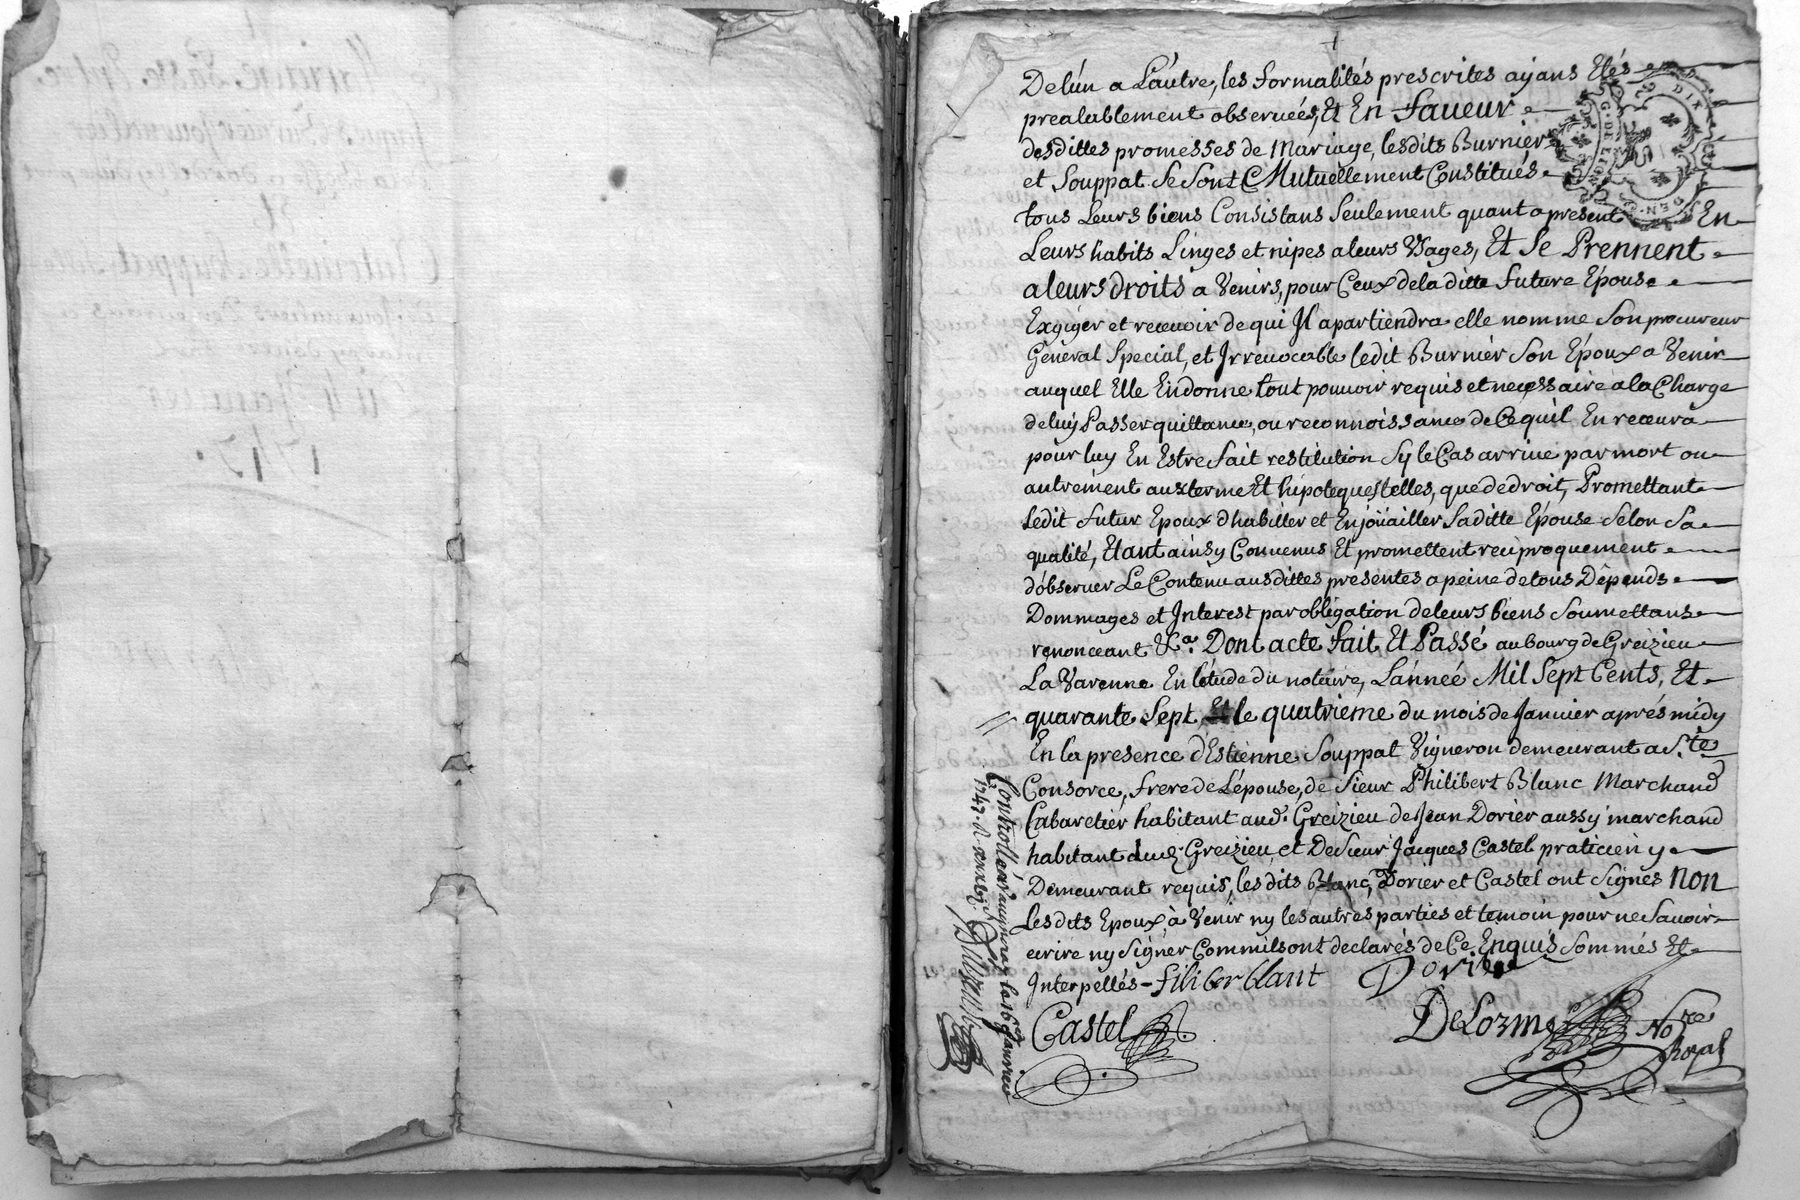 De lún a L'aútre, les formalités prescrites aÿans Etés
prealablement obseruées, Et En faueur
desdittes promesses de Mariage, lesdits Burnier
et Souppat se sont Mutuellement Constitués
tous Leurs biens Consistans seulement quant a present En
Leurs habits Linges et nipes a leurs Usages, Et se Prennent
a leurs droits a Venirs, pour Ceux de la ditte future Epouse
Exgiger et receuoir de qui Jl apartiendra elle nomme son procureur
General Special, et Jrreuocable ledit Burnier son Epoux a Venir
auquel Elle En donne tout pouuoir requis et necessaire a la Charge
de luy Passer quittance, ou reconnoissance de Ce quil En receura
pour luy En Estre fait restitution sy le Cas arriue par mort ou
autrement aux terme Et hipoteques telles, que de droit, Promettant
ledit futur Epoux d'habiller et Enjoüailler saditte Epouse selon sa
qualité, Etant ainsy Conuenus Et promettent reciproquement
d'obseruer Le Contenu ausdittes presentes a peine de tous Dépends
Dommages et Jnterest par obligation de leurs biens soumettans
renonceant &a. Dont acte fait Et Passé au bourg de Greizieu
La Varenne En létude du notaire, L'année Mil Sept Cents, Et
quarante Sept, Et le quatrieme du mois de Januier aprés midy
En la presence d'Estienne Souppat Vigneron demeurant a Ste
Consorce, frere de L'épouse, de Sieur Philibert Blanc Marchand
Cabaretier habitant aud. Greizieu de Jean Dorier aussy marchand
habitant aud. Greizieu, et De Sieur Jacques Castel praticien y
Demeurant requis, lesdits Blanc, Dorier et Castel ont signés non
Lesdits Epoux à Venir ny les autres parties et temoin pour ne sauoir
ecrire ny signer Comm'ils ont declarés de Ce Enquis sommés Et
Jnterpellés - filiber blant Dorier
Castel DeLorme Nore
Royal
Controllé a Vaugneray le 16e Januier
1747
G. DE LION
GEN.
DIX